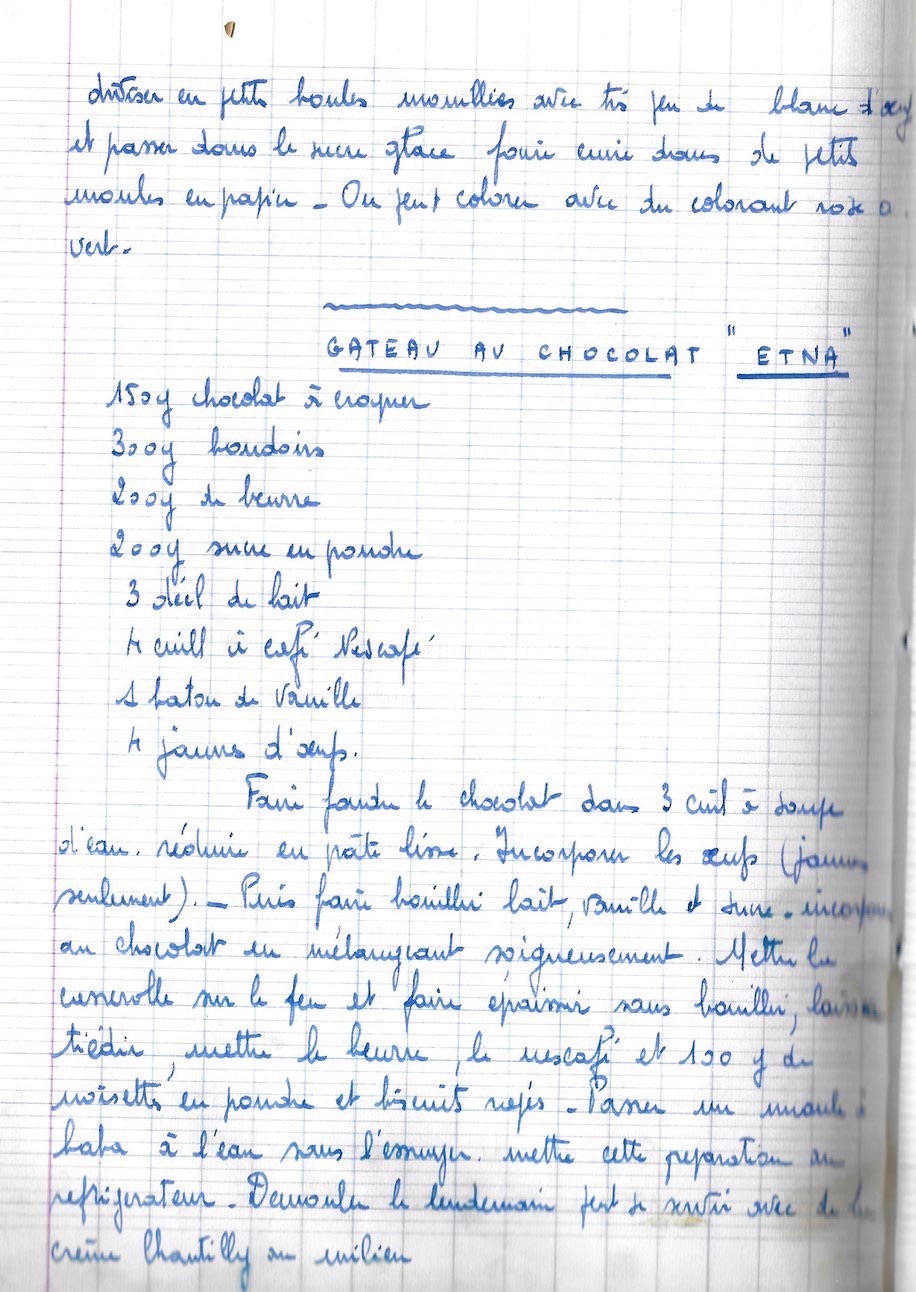 diviser en petits boules mouillées avec très peu de blanc d'œuf
et passer dans le sucre glace faire cuire dans de petits
moules en papier - On peut colorer avec du colorant rose o
vert.
GATEAU AU CHOCOLAT "ETNA"
150g chocolat à croquer
300g boudoirs
200g de beurre
200g sucre en poudre
3 décil de lait
4 cuill à café Nescafé
1 baton de vanille
4 jaunes d'œufs.
Faire fondre le chocolat dans 3 cuil à soupe
d'eau. réduire en pâte lisse. Incorporer les œufs (jaunes
seulement). - Puis faire bouillir lait, vanille et sucre. incorporer
au chocolat en mélangeant soigneusement. Mettre la
casserolle sur le feu et faire épaissir sans bouillir, laisser
tiédir, mettre le beurre, le nescafé et 100 g de
noisettes en poudre et biscuits rapés - Passer un moule à
baba à l'eau sans l'essuyer. mettre cette preparation au
refrigerateur - Demouler le lendemain peut se servir avec de la
crème Chantilly au milieu